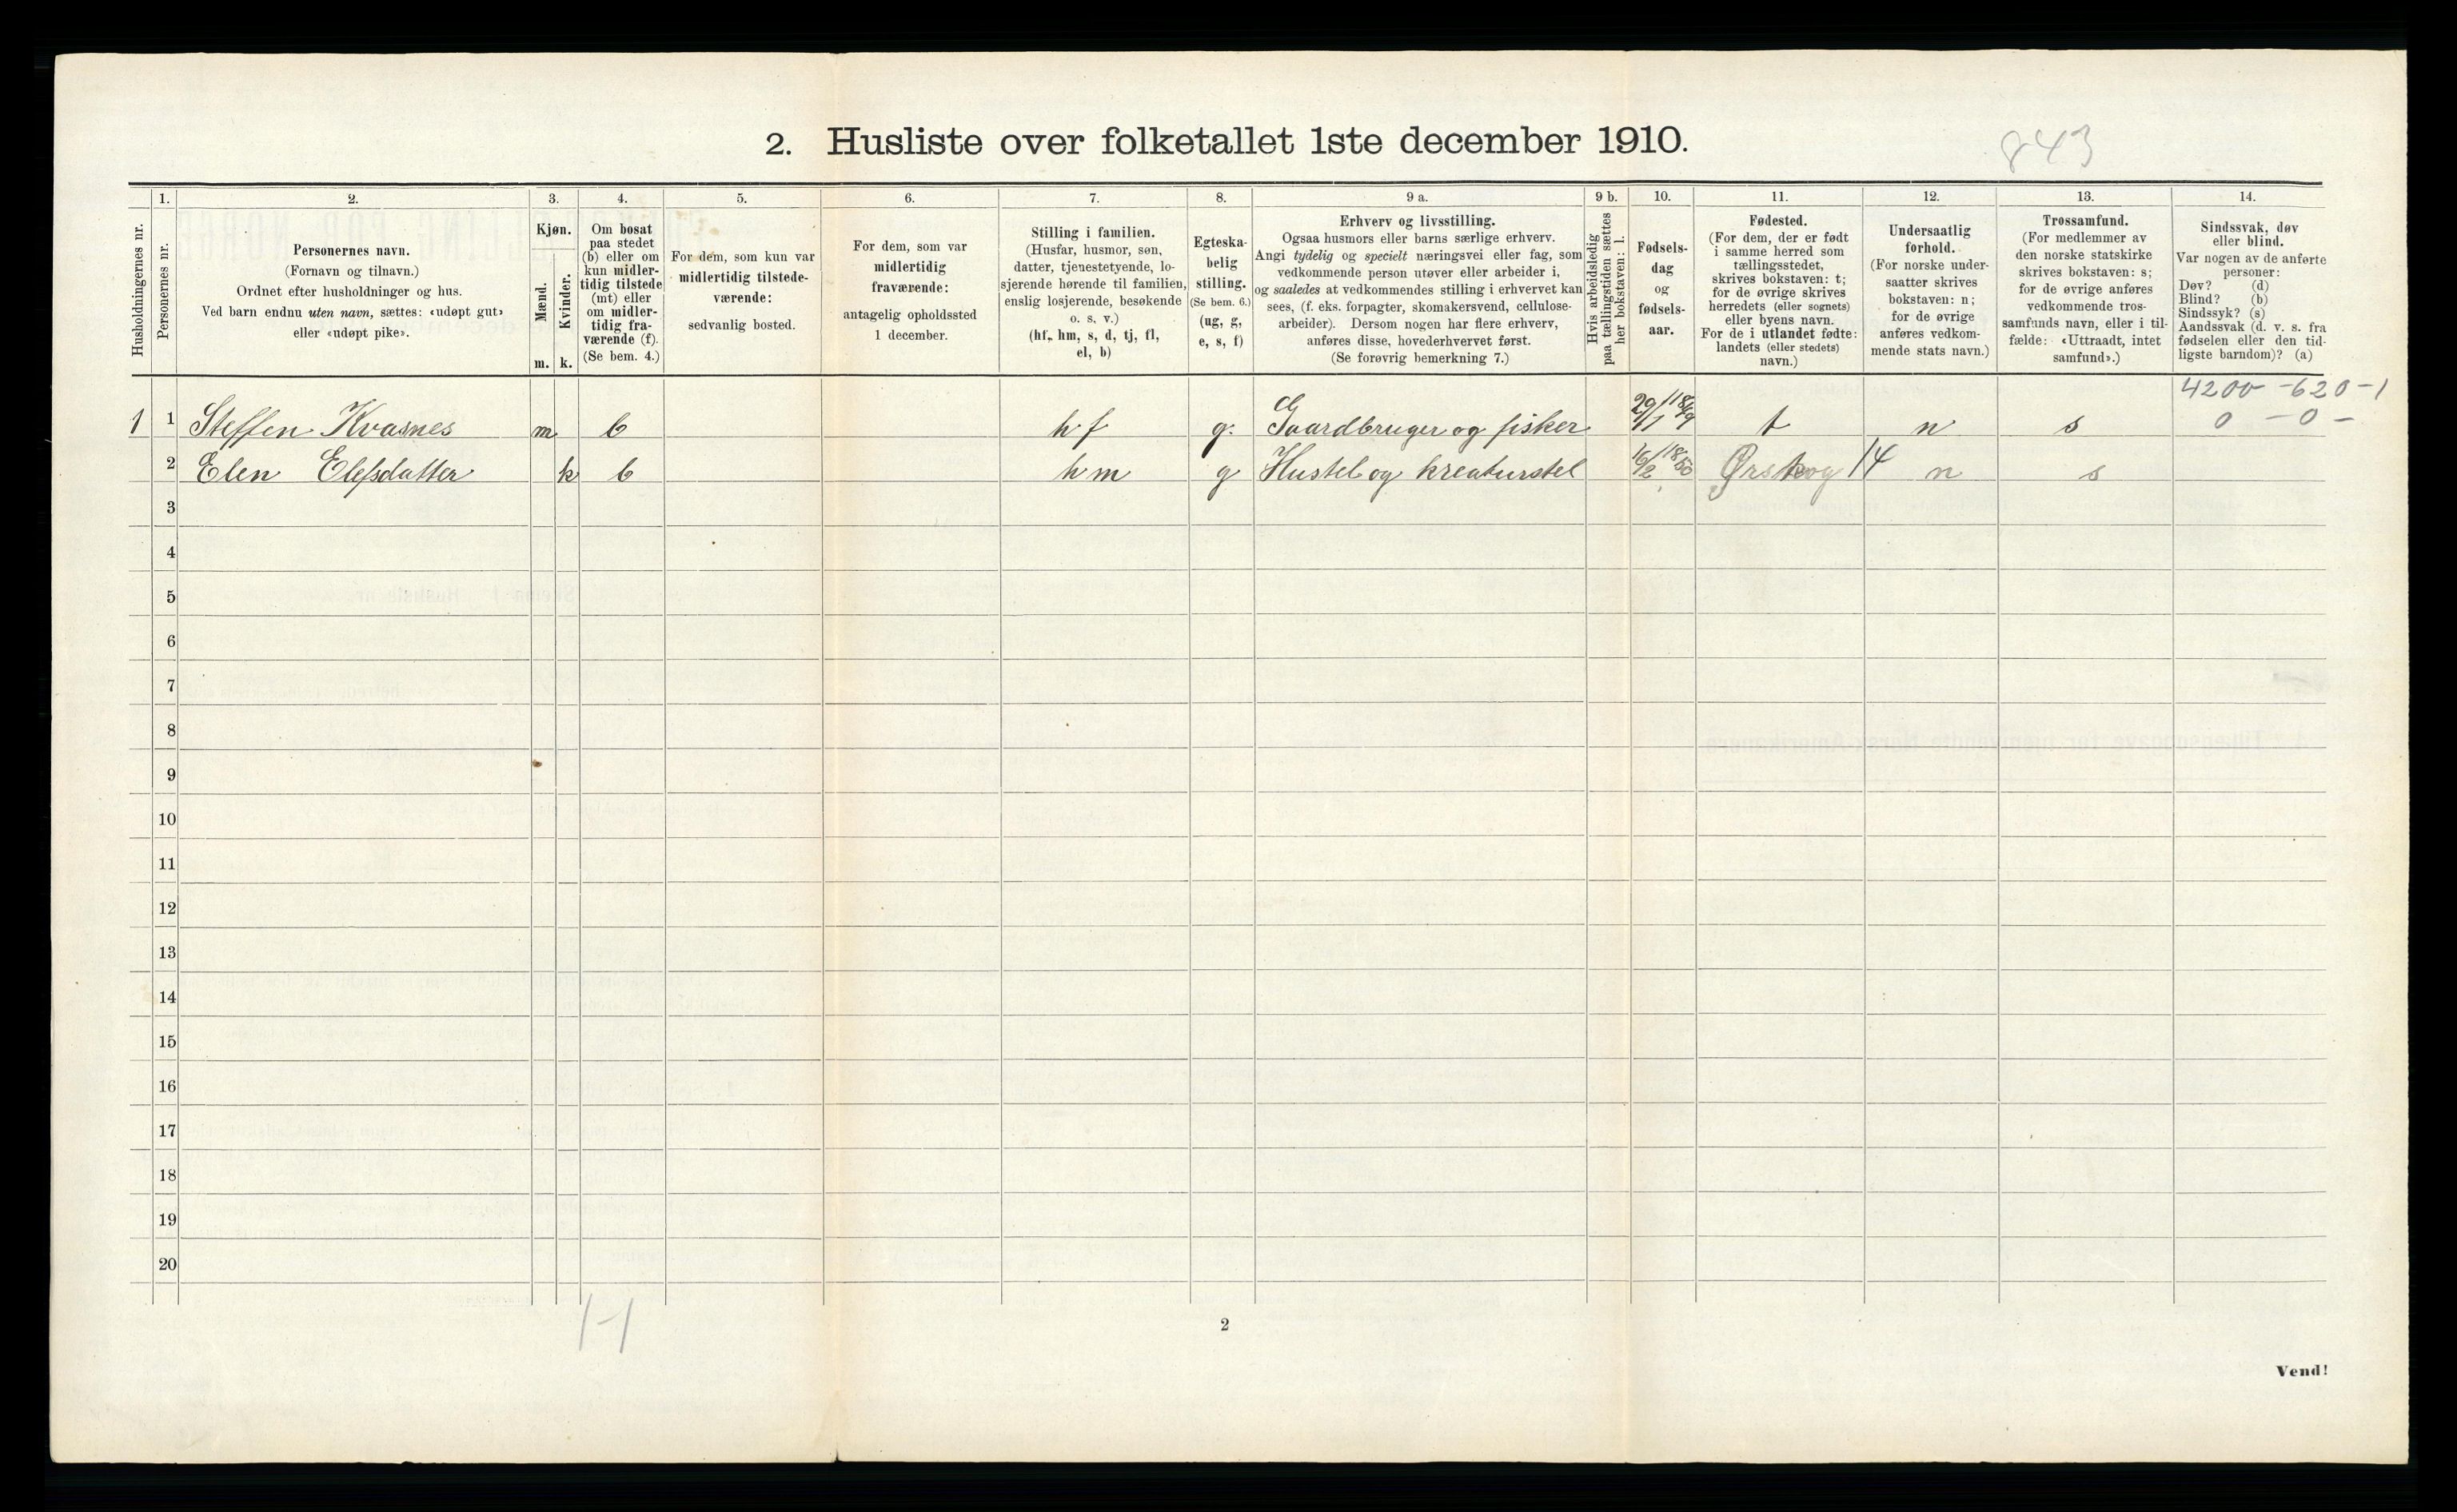 2. Husliste over folketallet 1ste december 1910.
843
Husholdningernes nr.
1.
Personernes nr.
2.
Personernes navn.
(Fornavn og tilnavn.)
Ordnet efter husholdninger og hus.
Ved barn endnu uten navn, sættes: «udøpt gut»
eller «udøpt pike».
3.
Kjøn.
Mænd.
m.
Kvinder.
k.
4.
Om bosat
paa stedet
(b) eller om
kun midler-
tidig tilstede
(mt) eller
om midler-
tidig fra-
værende (f).
(Se bem. 4.)
5.
For dem, som kun var
midlertidig tilstede-
værende:
sedvanlig bosted.
6.
For dem, som var
midlertidig
fraværende:
antagelig opholdssted
1 december.
7.
Stilling i familien.
(Husfar, husmor, søn,
datter, tjenestetyende, lo-
sjerende hørende til familien,
enslig losjerende, besøkende
o. s. v.)
(hf, hm, s, d, tj, fl,
el, b)
8.
Egteska-
belig
stilling.
(Se bem. 6.)
(ug, g,
e, s, f)
9 a.
Erhverv og livsstilling.
Ogsaa husmors eller barns særlige erhverv.
Angi tydelig og specielt næringsvei eller fag, som
vedkommende person utøver eller arbeider i,
og saaledes at vedkommendes stilling i erhvervet kan
sees, (f. eks. forpagter, skomakersvend, cellulose-
arbeider). Dersom nogen har flere erhverv,
anføres disse, hovederhvervet først.
(Se forøvrig bemerkning 7.)
9 b.
Hvis arbeidsledig
paa tællingstiden sættes
her bokstaven: l.
10.
Fødsels-
dag
og
fødsels-
aar.
11.
Fødested.
(For dem, der er født
i samme herred som
tællingsstedet,
skrives bokstaven: t;
for de øvrige skrives
herredets (eller sognets)
eller byens navn.
For de i utlandet fødte:
landets (eller stedets)
navn.)
12.
Undersaatlig
forhold.
(For norske under-
saatter skrives
bokstaven: n;
for de øvrige
anføres vedkom-
mende stats navn.)
13.
Trossamfund.
(For medlemmer av
den norske statskirke
skrives bokstaven: s;
for de øvrige anføres
vedkommende tros-
samfunds navn, eller i til-
fælde: «Uttraadt, intet
samfund».)
14.
Sindssvak, døv
eller blind.
Var nogen av de anførte
personer:
Døv? (d)
Blind? (b)
Sindssyk? (s)
Aandssvak (d. v. s. fra
fødselen eller den tid-
ligste barndom)? (a)
4200 - 620 - 1
0 - 0 -
1 1 Steffen Kvasnes m b hf g. Gaardbruger og fisker 29/1 1849 t n s
2 Elen Elefsdatter k b hm g Hustel og kreaturstel 16/2 1850 Ørskog 14 n s
3
4
5
6
7
8
9
10
11
12
13
14
15
16
17
18
19
20
1-1
2
Vend!